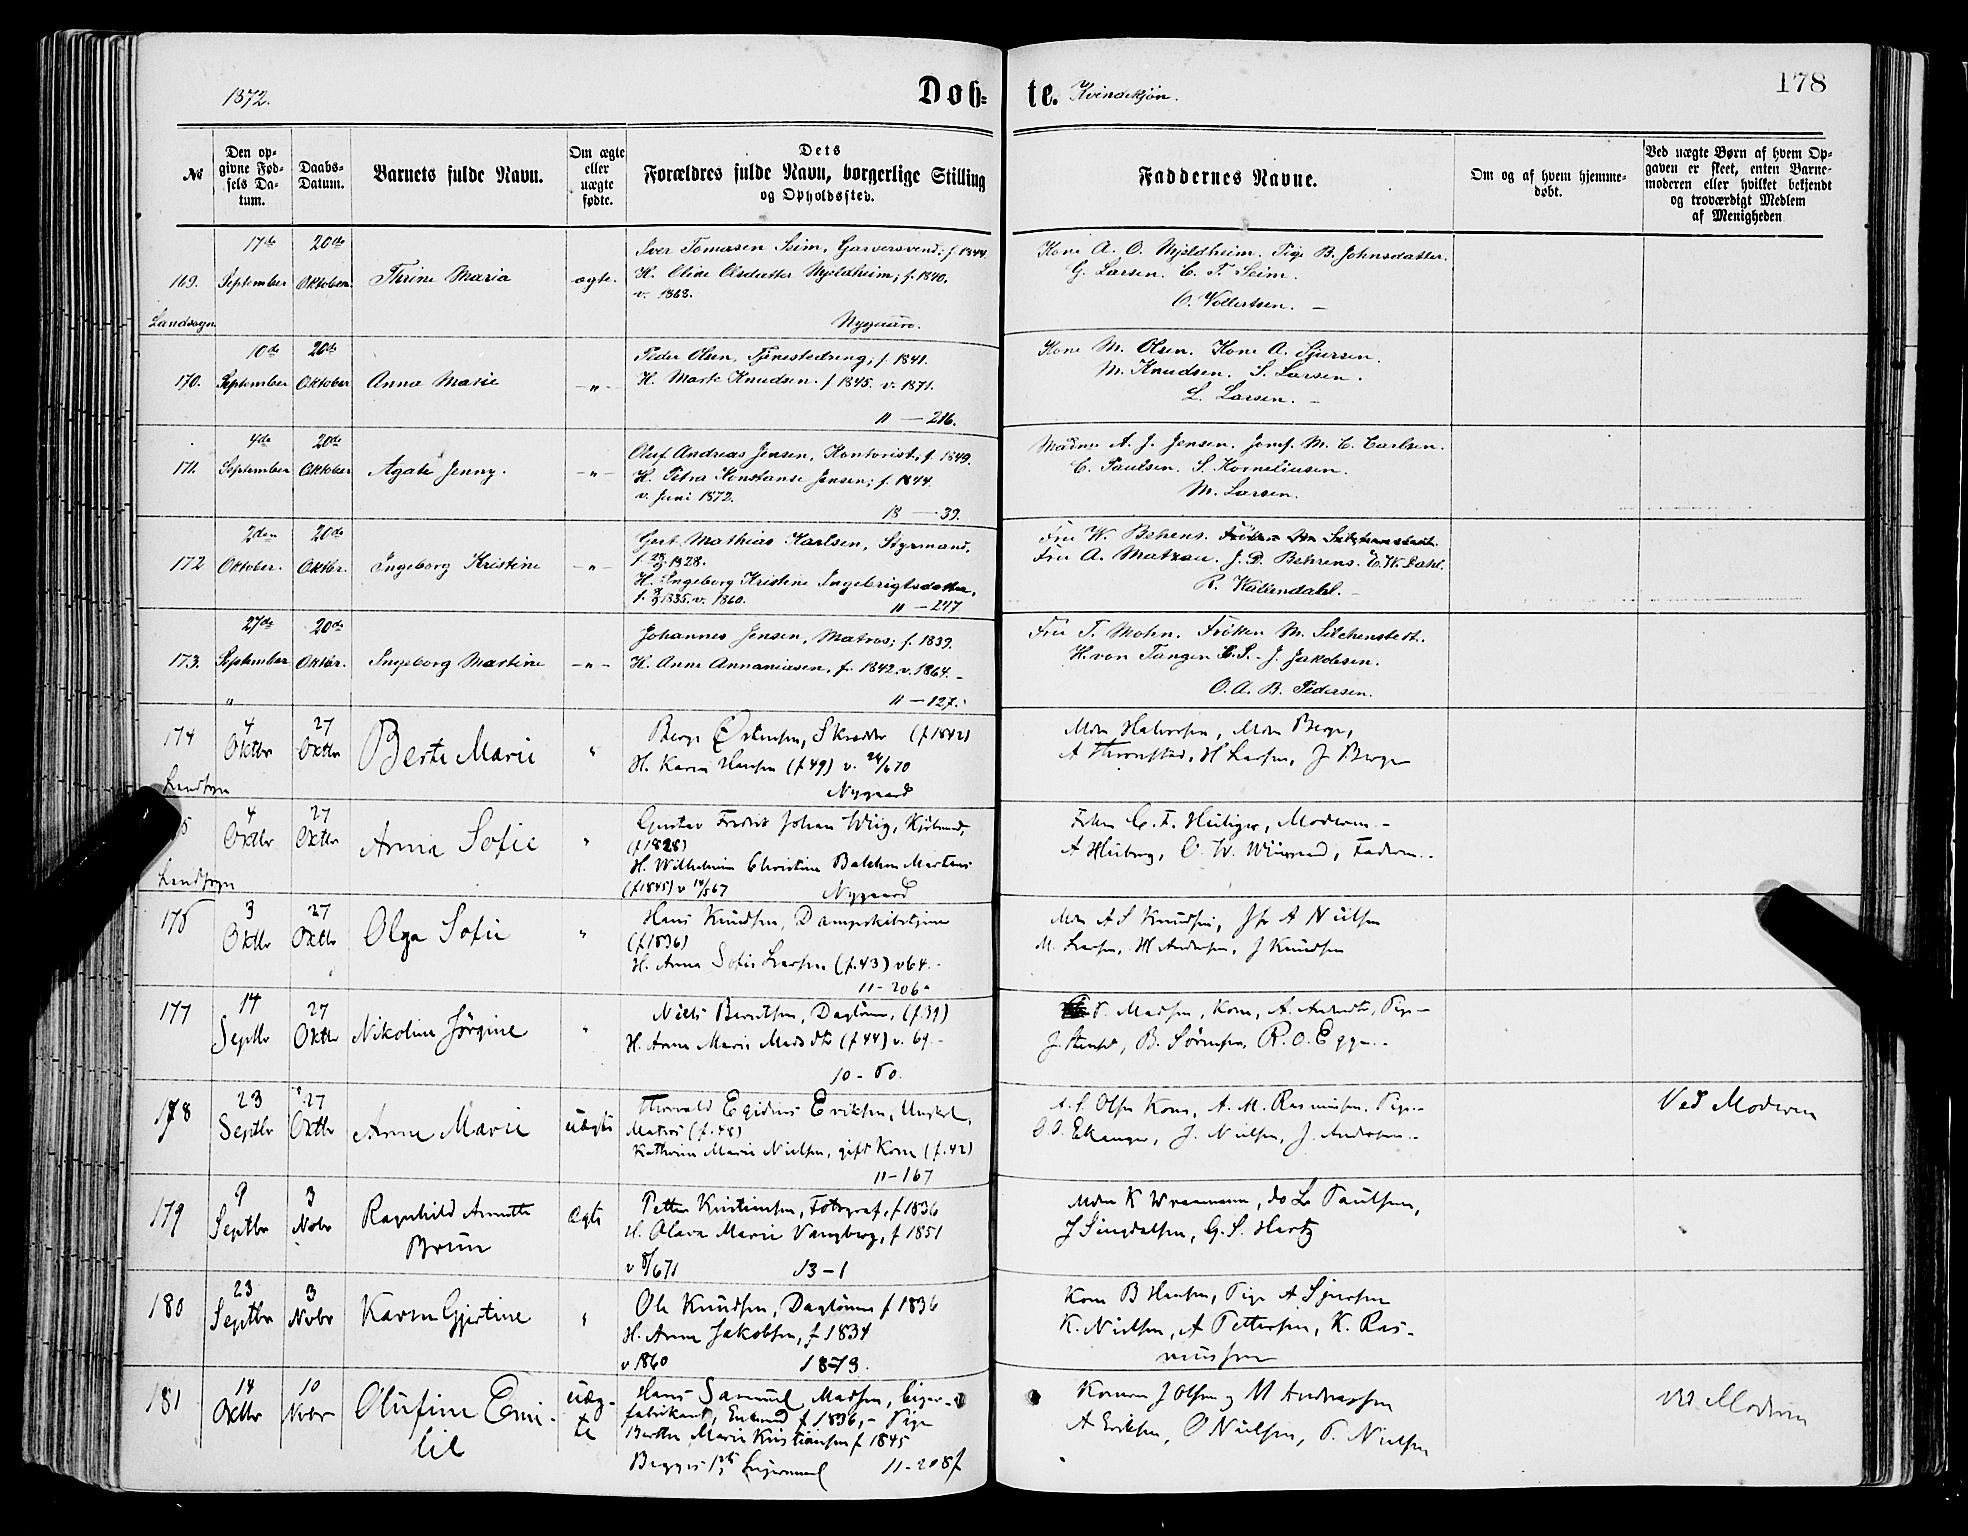 1872.
Døb-
te. Kvindekjøn.
178
№
Den op-
givne Fød-
sels Da-
tum.
Daabs-
Datum.
Barnets fulde Navn.
Om ægte
eller
uægte
fødte.
Dets
Forældres fulde Navn, borgerlige Stilling
og Opholdssted.
Faddernes Navne.
Om og af hvem hjemme-
døbt.
Ved uægte Børn af hvem Op-
gaven er skeet, enten Barne-
moderen eller hvilket bekjendt
og troværdigt Medlem
af Menigheden
169.
Landsogn
17de
September
20de
Oktober
Thrine Maria
ægte.
Iver Tomasen Seim, Garversvend; f 1844
H. Oline Olsdatter Mjeldheim; f. 1840.
v. 1868.
Nygaard.
Kone A. O. Mjeldheim. Pige B. Johnsdatter.
G. Larsen. C. T. Seim.
O. Vollertsen. —
170.
10de
September
20de
Oktober
Anna Marie
—„—
Peder Olsen, Tjenestedreng; f 1841.
H. Marte Knudsen. f 1845. v. 1871.
11 — 216.
Kone M. Olsen. Kone A. Sjursen.
M. Knudsen. S. Larsen.
L. Larsen. —
171.
4de
September
20de
Oktober
Agate Jenny.
—„—
Oluf Andreas Jensen, Kontorist, f. 1849.
H. Petra Konstanse Jensen; f. 1844.
v. Juni 1872.
18 — 39.
Madm A. J. Jensen. Jomf. M. C. Carlsen.
C. Paulsen. S. Korneliusen.
M. Larsen.
172
2den
Oktober.
20de
Oktbr.
Ingeborg Kristine
—„—
Gert Mathias Karlsen, Styrmand,
H. Ingeborg Kristine Ingebrigtsdatter,
1835. v. 1860.
11 — 247
Fru W. Behens.
Fru A. Matzau. J. D. Behrens. C. W. Dahl.
R. Kaliendahl. —
173.
27de
September
„
20de
Oktbr.
Ingeborg Martine
—„—
Johannes Jensen, Matros; f. 1839.
H. Anne Annaniasen, f. 1842. v. 1864. —
11 — 127.
Fru T. Mohn. Frøken M. Silchenstedt.
H. von Tangen J. Jakobsen.
O. A. B. Pedersen.
174
Landsogn
4
Oktbr
27
Oktbr
Berte Marie
„
Berge Østensen, Skrædder (f 1842)
H. Karen Hansen (f 49) v. 24/6 70
Nygaard
Mdm Halvorsen, Mdm Berge,
A Thronstad, H Larsen, J Berge
5
Landsogn
4
Oktbr
27
Oktbr
Anna Sofie
„
Gustav Fredrik Johan Wiig, Kjøbmd,
(f 1828)
H. Wilhelmine Christine Balchen Martens
(f 1845) v 14/5 67
Nygaard
C. F. Heitiger, Moderen. —
A Heiberg, O. W. Wiigaard, Faderen.
176
3
Oktbr
27
Oktbr
Olga Sofie
„
Hans Knudsen, Dampskibstjener
(f 1836)
H. Anna Sofie Larsen (f. 43) v 64.
11 - 206
Mdm A S Knudsen, Jfr A Nielsen
M. Larsen, M Andersen, J Knudsen
177
14
Septbr
27
Oktbr
Nikoline Jørgine
„
Niels Berntsen, Dagløner, (f. 39)
H. Anne Marie Madsdtr (f. 44) v. 69. —
10 - 60.
Madsen, Kone, A. Pige —
J. B. Sørensen, R. O. Egge. —
178
23
Septbr
27
Oktbr
Anne Marie
uægte
Thorvald Egidius Eriksen, Ungkarl,
Matros (f. 48)
Kathrine Marie Nielsen, gift Kone (f. 42)
11 - 167
A. S. Olsen Kone, A. M. Rasmussen, Pige. —
O. O. Ekanger, J. Nielsen, J. Andersen. —
Ved Moderen
179
9
Septbr
3
Novbr
Ragnhild Annette
Brun
Ægte
Petter Kristiansen, Fotograf, f 1836
H. Olava Marie Vangberg, f 1851
v 8/6 71
13 - 1
Mdm K Wraamann, do L Paulsen,
J Singdalsen, G. S. Hartz
180
23
Septbr
3
Novbr
Karen Gjertine
„
Ole Knudsen, Dagløner f 1836
H. Anne Jakobsen, f 1834
v 1860
18-73.
Kone B Hansen, Pige A Sjursen
K. Nielsen, A Pettersen, K. Ras-
mussen
181
14
Oktbr
10
Novbr
Olufine Emi-
lie
uæg-
te
Hans Samuel Madsen, Cigar-
fabrikant, Enkmd f 1836, — Pige
Berthe Marie Kristiansen f 1845
Begges 1ste Leiermaal
11 - 208f
Konerne J Olsen og M Andreassen
A Eriksen, O Nielsen, P. Nielsen
Ved Moderen